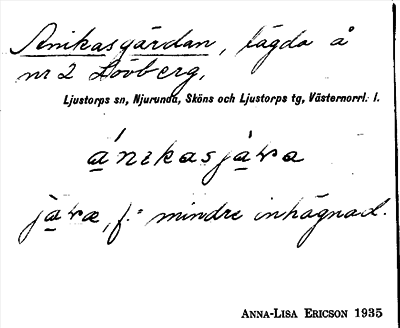 Anikasgärdan, lägda å
nr 2 Lövberg,
Ljustorps sn, Njurunda, Sköns och Ljustorps tg, Västernorrl. l.
f.: mindre inhägnad.
ANNA-LISA ERICSON 1935